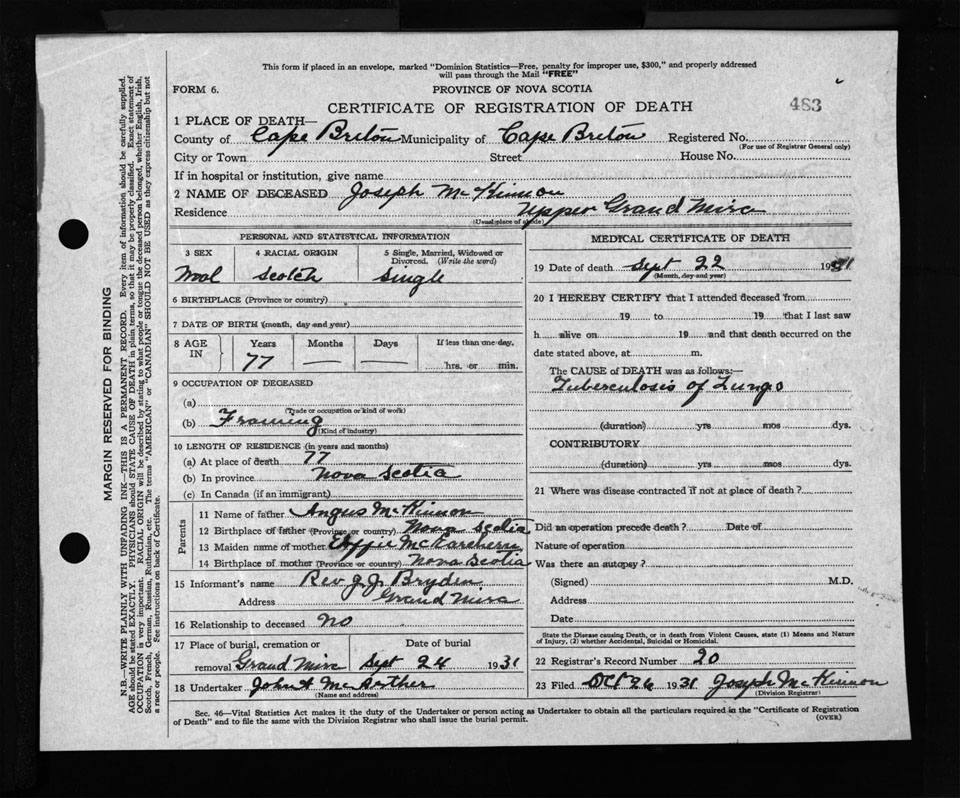 This form if placed in an envelope, marked "Dominion Statistics—Free, penalty for improper use, $300," and properly addressed
will pass through the Mail "FREE"
FORM 6. PROVINCE OF NOVA SCOTIA
CERTIFICATE OF REGISTRATION OF DEATH 483
1 PLACE OF DEATH—
County of Cape Breton Municipality of Cape Breton Registered No.
(For use of Registrar General only)
City or Town Street House No.
If in hospital or institution, give name
2 NAME OF DECEASED Joseph McKinnon
Residence Upper Grand Mira
(Usual place of abode)
PERSONAL AND STATISTICAL INFORMATION
3 SEX 4 RACIAL ORIGIN 5 Single, Married, Widowed or
Divorced. (Write the word)
Mal Scotch Single
6 BIRTHPLACE (Province or country)
7 DATE OF BIRTH (month, day and year)
8 AGE IN Years Months Days If less than one day,
77 — — hrs. or min.
9 OCCUPATION OF DECEASED
(a)
(Trade or occupation or kind of work)
(b) Framing
(Kind of industry)
10 LENGTH OF RESIDENCE (in years and months)
(a) At place of death 77
(b) In province Nova Scotia
(c) In Canada (if an immigrant)
Parents
11 Name of father Angus McKinnon
12 Birthplace of father (Province or country) Nova Scotia
13 Maiden name of mother Effie McEarchern
14 Birthplace of mother (Province or country) Nova Scotia
15 Informant's name Rev J. J. Bryden
Address Grand Mira
16 Relationship to deceased No
17 Place of burial, cremation or Date of burial
removal Grand Mira Sept 24 1931
18 Undertaker John A McArther
(Name and address)
MEDICAL CERTIFICATE OF DEATH
19 Date of death Sept 22 1931
(Month, day and year)
20 I HEREBY CERTIFY that I attended deceased from
19 to 19 that I last saw
h alive on 19 and that death occurred on the
date stated above, at m.
The CAUSE of DEATH was as follows:—
Tuberculosis of Lungs
(duration) yrs mos dys.
CONTRIBUTORY
(duration) yrs mos dys.
21 Where was disease contracted if not at place of death?
Did an operation precede death? Date of
Nature of operation
Was there an autopsy?
(Signed) M.D.
Address
Date
State the Disease causing Death, or in death from Violent Causes, state (1) Means and Nature
of Injury, (2) whether Accidental, Suicidal or Homicidal.
22 Registrar's Record Number 20
23 Filed Oct 26 1931 Joseph McKinnon
(Division Registrar)
Sec. 46—Vital Statistics Act makes it the duty of the Undertaker or person acting as Undertaker to obtain all the particulars required in the "Certificate of Registration
of Death" and to file the same with the Division Registrar who shall issue the burial permit. (OVER)
MARGIN RESERVED FOR BINDING
N.B.—WRITE PLAINLY WITH UNFADING INK—THIS IS A PERMANENT RECORD. Every item of information should be carefully supplied.
AGE should be stated EXACTLY. PHYSICIANS should STATE CAUSE OF DEATH in plain terms, so that it may be properly classified. Exact statement of
OCCUPATION is very important. RACIAL ORIGIN will be described by stating to what people or tongue the deceased person belonged, whether English, Irish,
Scotch, French, German, Russian, Ruthenian, etc. The terms "AMERICAN" or "CANADIAN" SHOULD NOT BE USED as they express citizenship but not
a race or people. See instructions on back of Certificate.